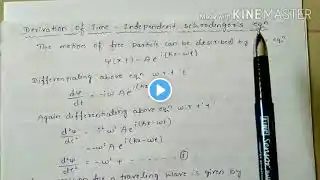 Made with KINEMASTER
Derivation of Time - Independent Schrodenger's eqⁿ
The motion of free particle can be described by eqⁿ
ψ(x,t) = A e^i(kx-wt)
Differentiating above eqⁿ w.r.t 't'
dψ/dt = -iw A e^i(kx-wt)
Again differentiating above eqⁿ w.r.t 't'
d²ψ/dt² = i²w² A e^i(kx-wt)
= -w² A e^i(kx-wt)
d²ψ/dt² = -w² ψ - - - - - ①
for a traveling wave is given by